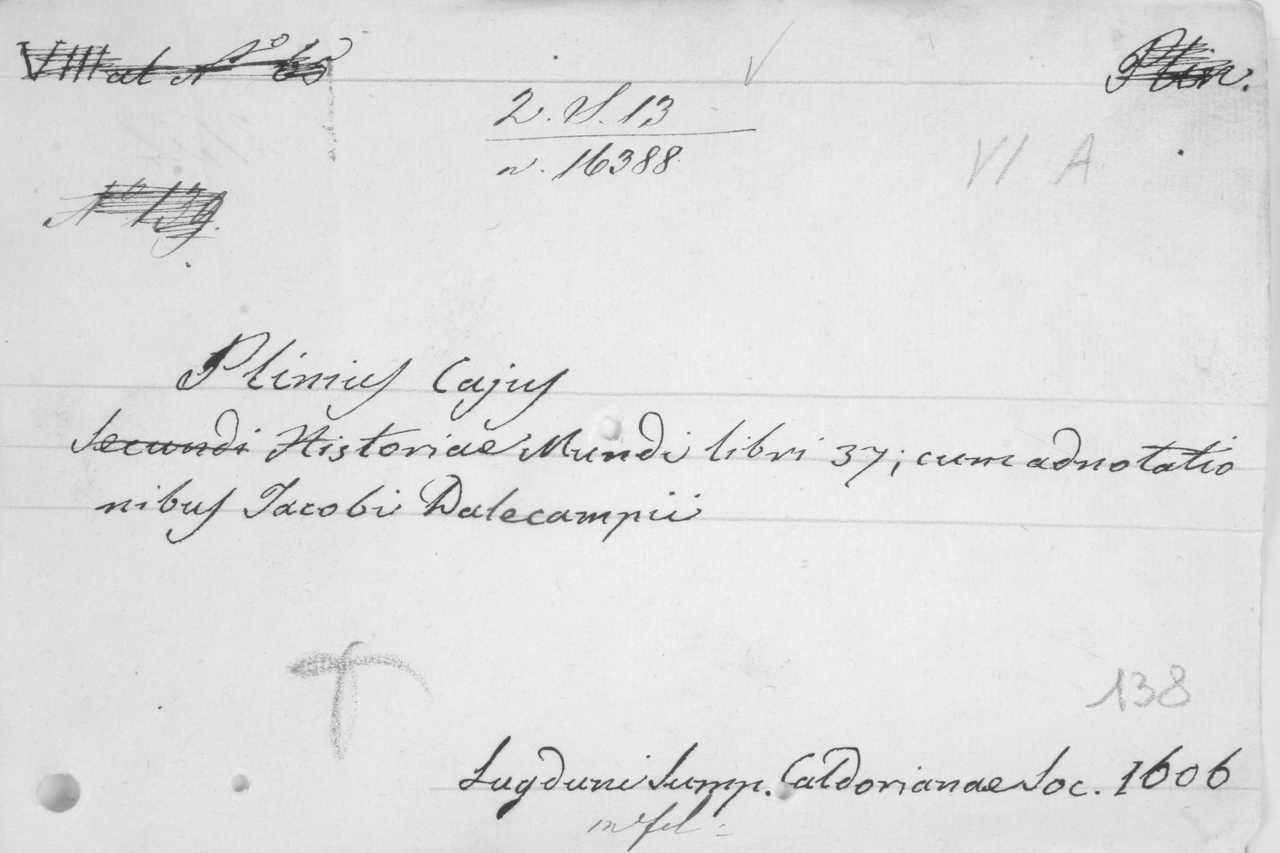 VIII at No 65
Plin.
2. S. 13
n. 16388
VI A
No 139.
Plinius Cajus
Secundi Historiae Mundi libri 37; cum adnotatio
nibus Jacobi Dalecampii
138
Lugduni Sump. Caldorianae Soc. 1606